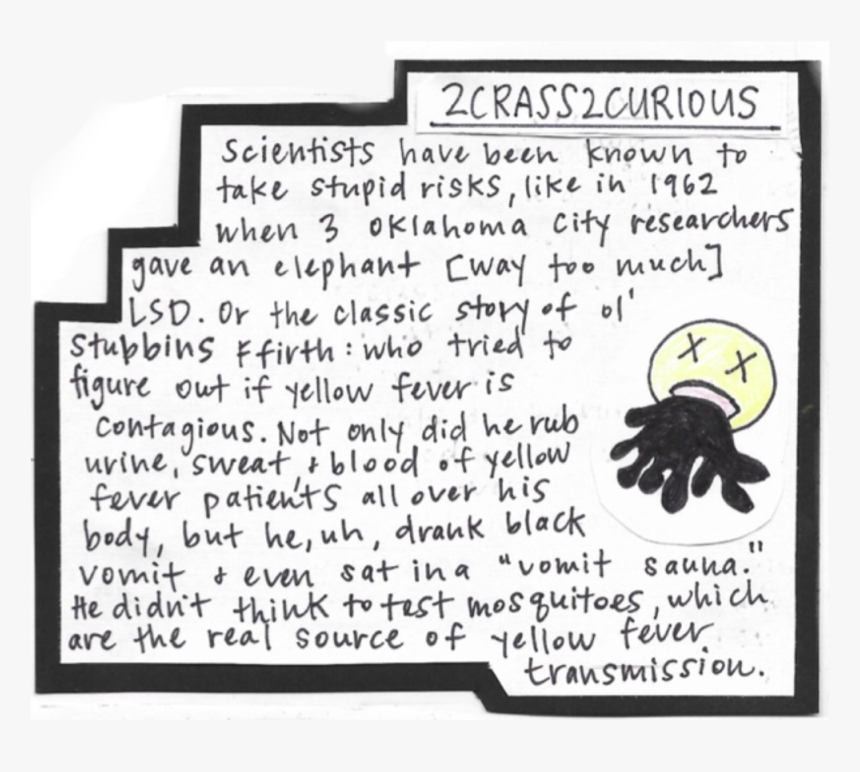 2CRASS2CURIOUS
Scientists have been known to
take stupid risks, like in 1962
when 3 Oklahoma City researchers
gave an elephant [way too much]
LSD. Or the classic story of ol'
Stubbins Ffirth: who tried to
figure out if yellow fever is
contagious. Not only did he rub
urine, sweat, & blood of yellow
fever patients all over his
body, but he, uh, drank black
vomit & even sat in a "vomit sauna."
He didn't think to test mosquitoes, which
are the real source of yellow fever
transmission.